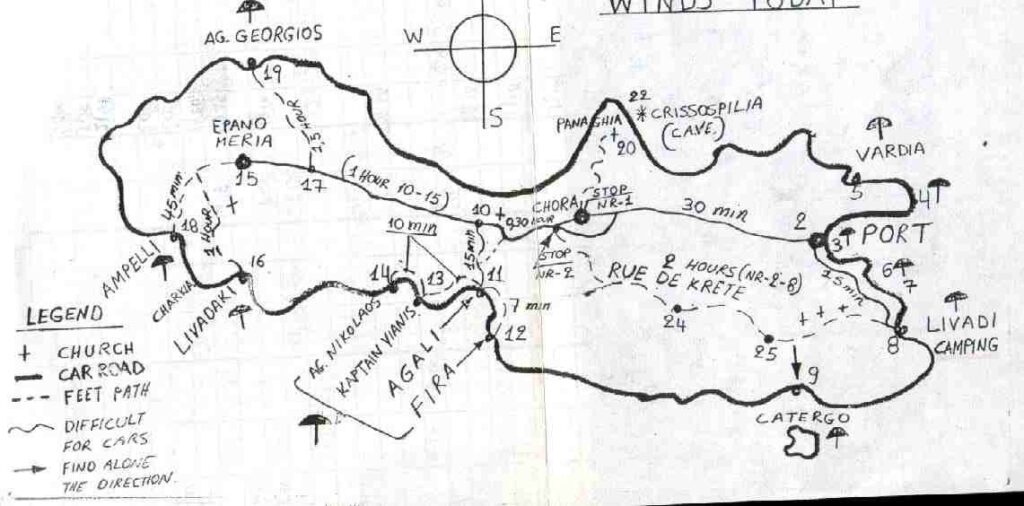 WINDS TODAY
AG. GEORGIOS
W
E
S
19
22
*CRISSOSPILIA
(CAVE.)
PANAGHIA
20
EPANO
MERIA
15
1,5 HOUR
17
(1 HOUR 10-15)
VARDIA
5
4
45 min
1 HOUR
10
0,30 HOUR
CHORA
STOP
NR-1
30 min
2
3
PORT
18
AMPELLI
CHARKIA
16
LIVADAKI
10 min
15 min
STOP
NR-2
RUE
DE KRETE
2 HOURS (NR-2-8)
15 min
6
7
14
13
11
7 min
12
24
25
8
LIVADI
CAMPING
AG. NIKOLAOS
KAPTAIN YIANIS
AGALI
FIRA
9
CATERGO
LEGEND
+ CHURCH
CAR ROAD
FEET PATH
DIFFICULT
FOR CARS
FIND ALONE
THE DIRECTION.